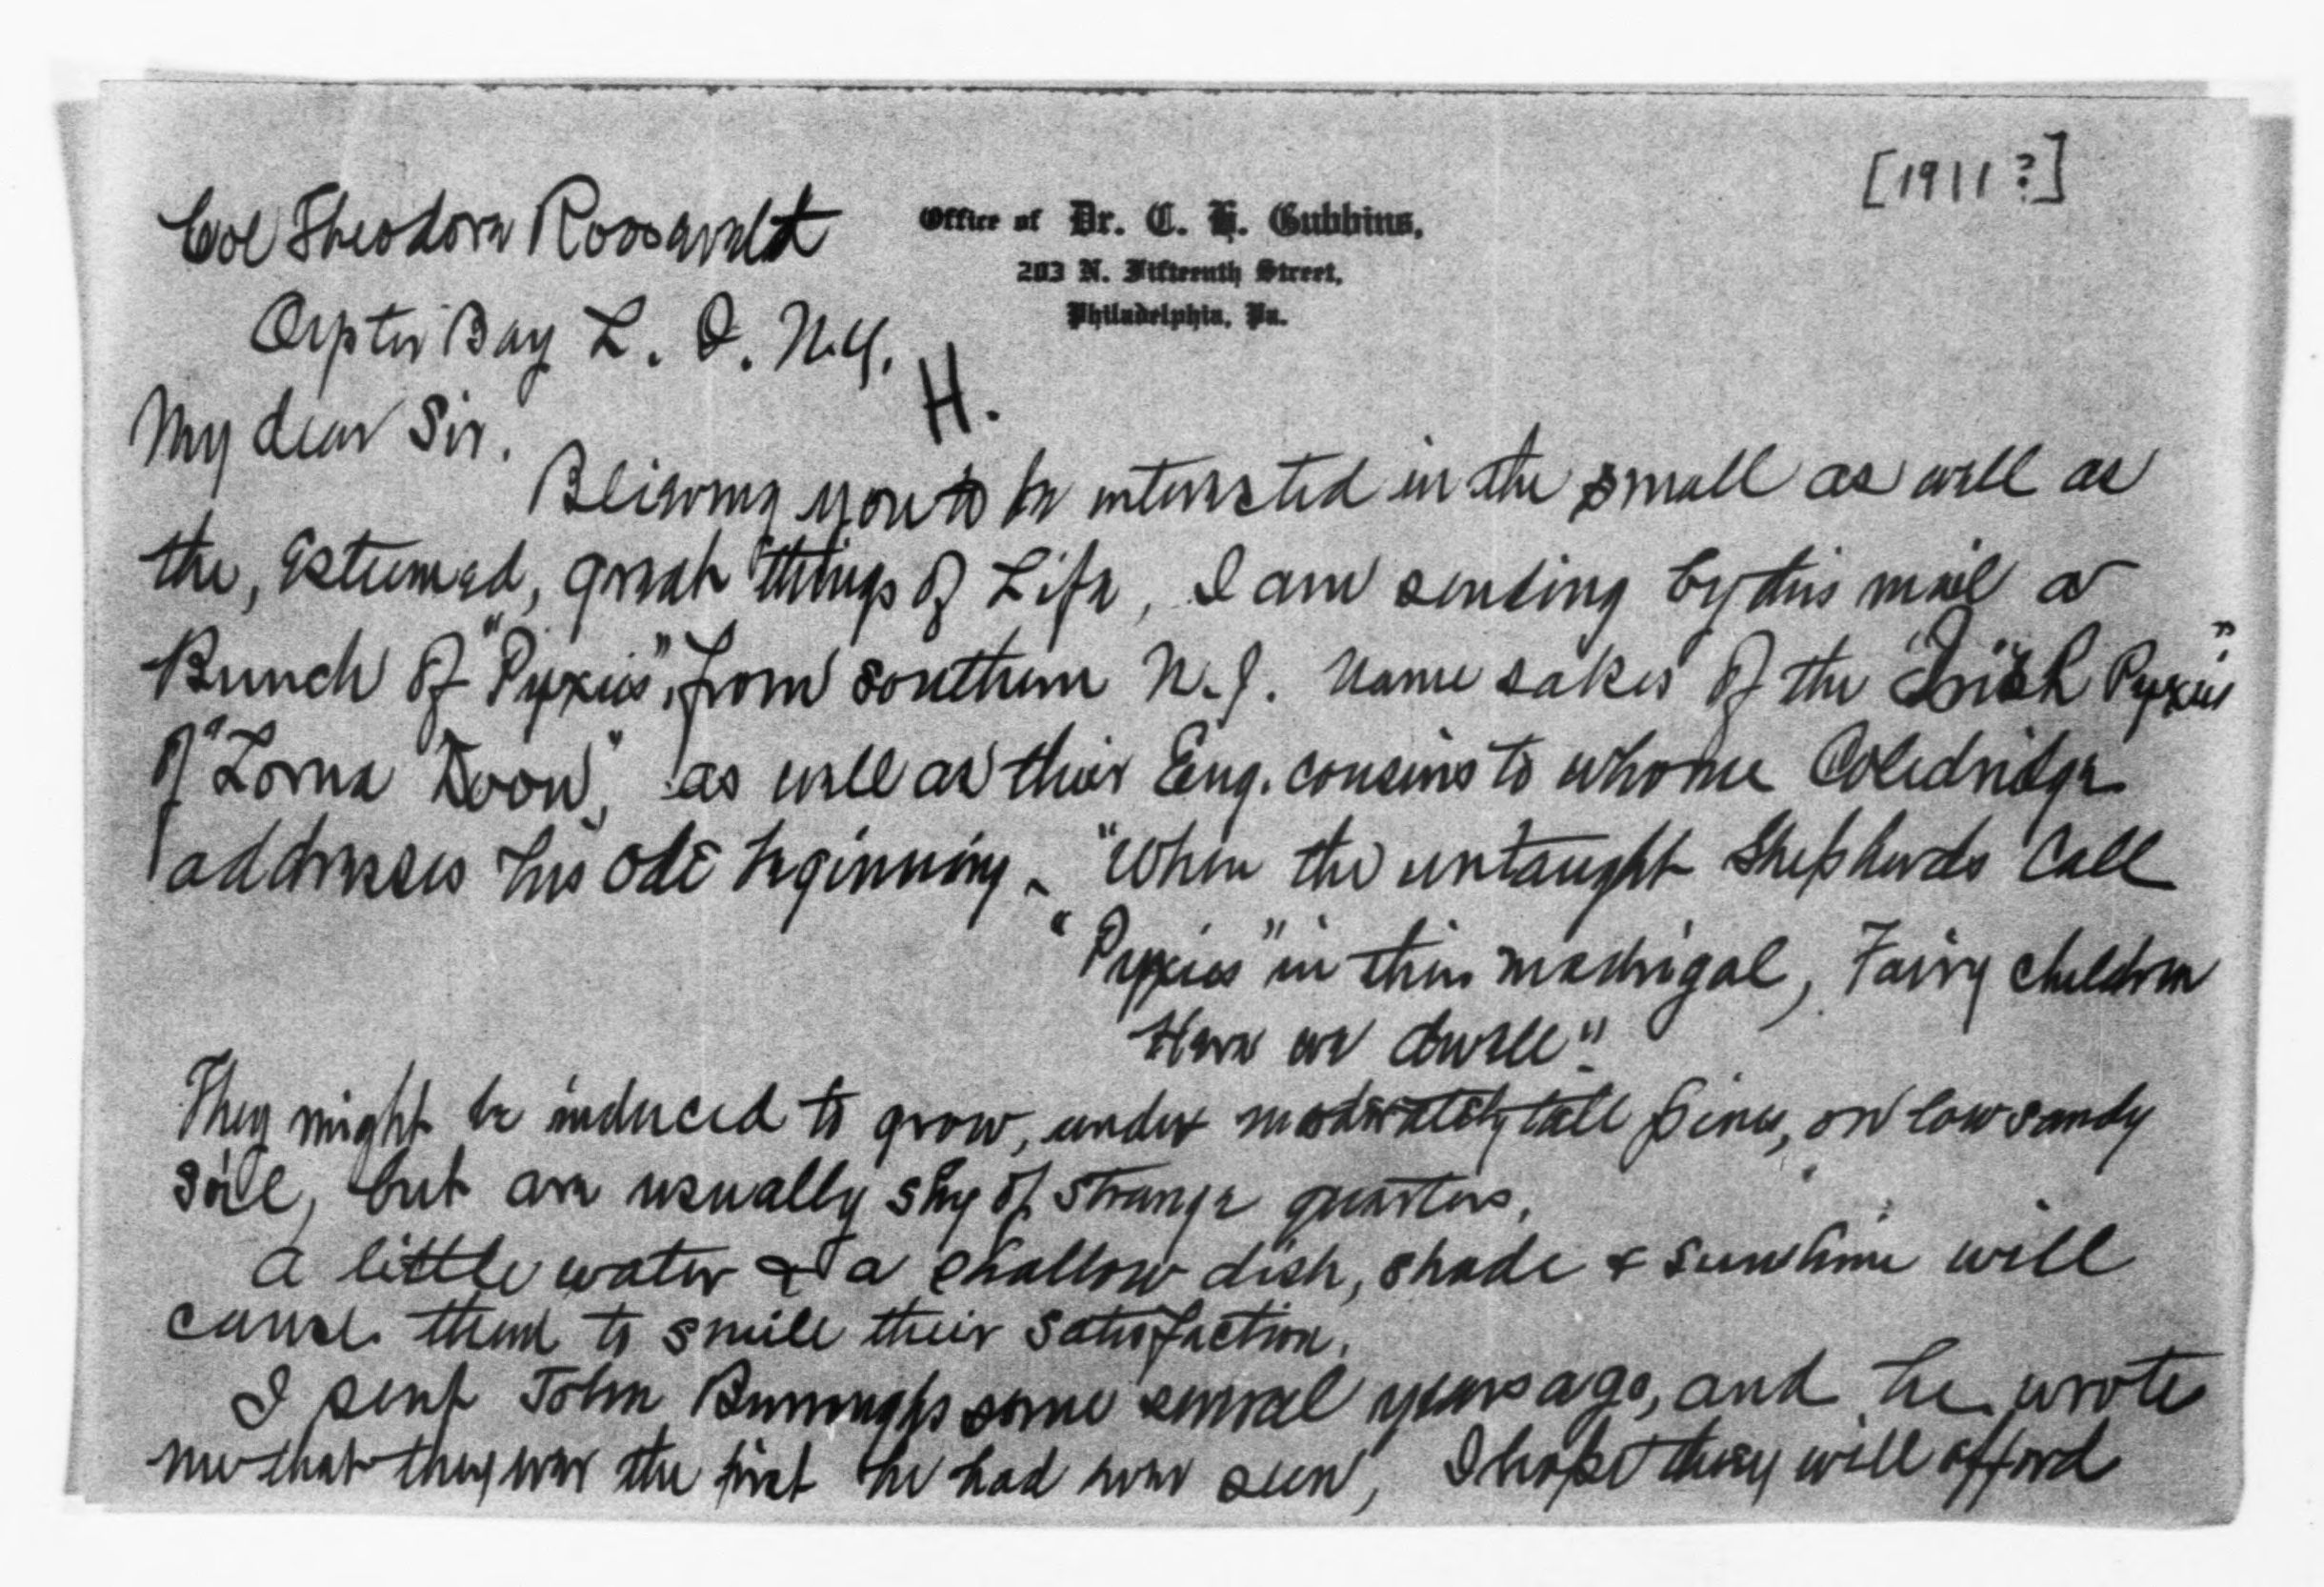 [1911?]
Office of Dr. C. H. Gubbins,
203 N. Fifteenth Street,
Philadelphia, Pa.
Col Theodore Roosevelt
Oyster Bay L. I. N.Y.
H.
My dear Sir.
Believing you to be interested in the small as well as
the, esteemed, great things of Life, I am sending by this mail a
Bunch of "Pyxies", from southern N.J. Name sakes of the "Irish Pyxies"
of "Lorna Doon," as well as their Eng. cousins to whome Coledridge
addresses his ode beginning - "When the untaught Shepherds Call
"Pyxies" in their madrigal, Fairy children
Here we dwell".
They might be induced to grow, under moderately tall pines, on low sandy
soil, but are usually shy of strange quarters.
A little water & a shallow dish, shade & sunshine will
cause them to smile their satisfaction.
I sent John Burroughs some several years ago, and he wrote
me that they were the first he had ever seen, I hope they will afford